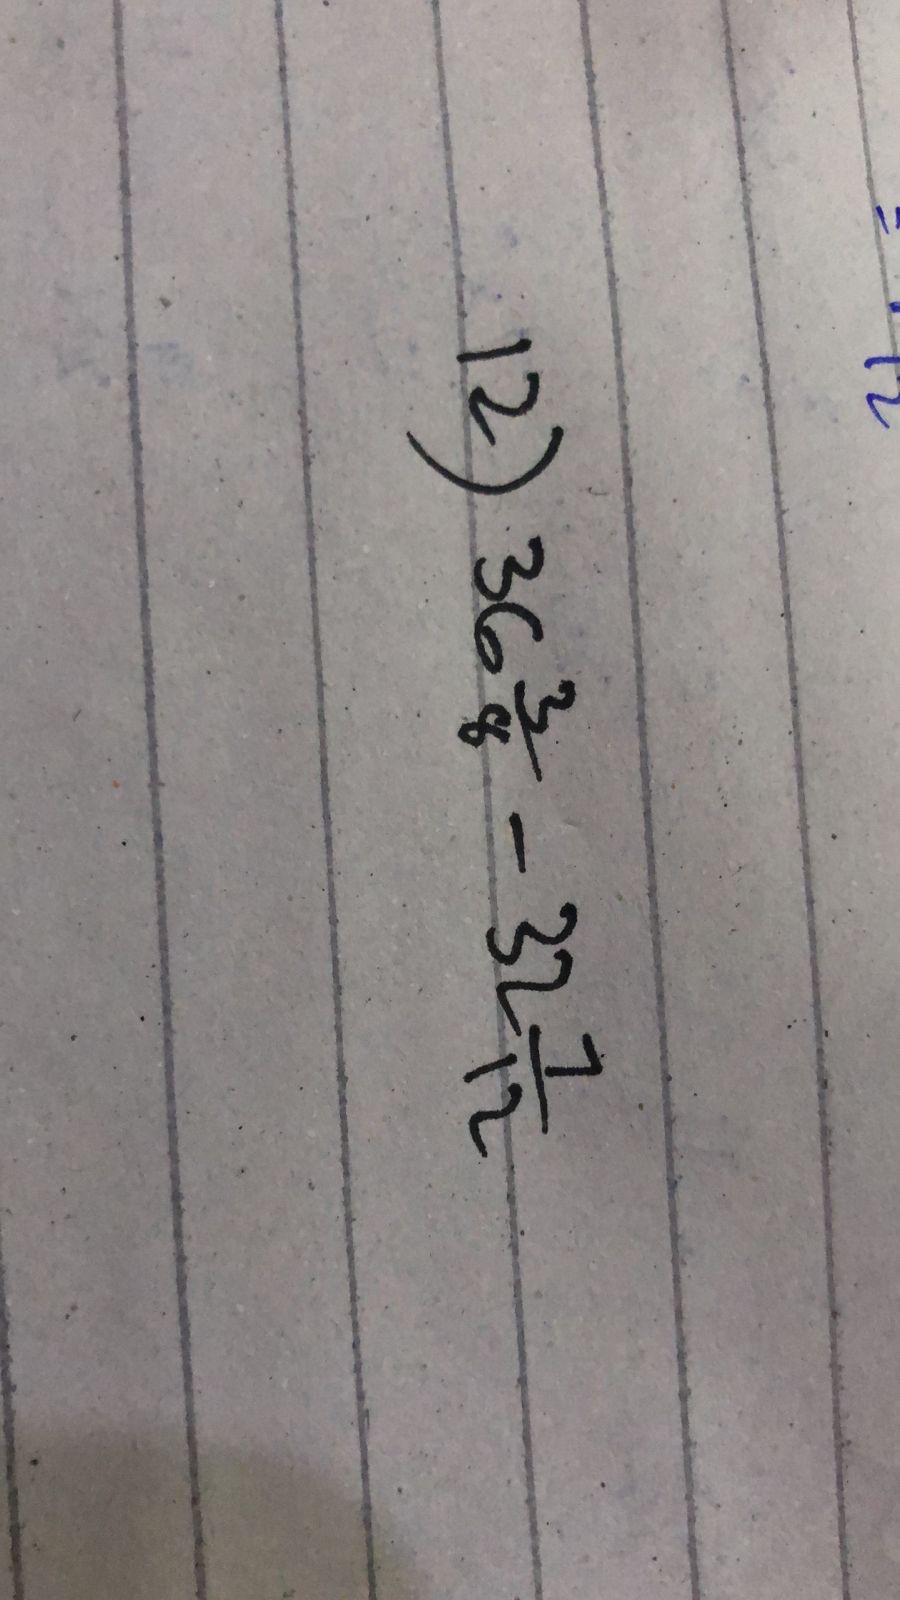 12) 36 3/8 - 32 7/12